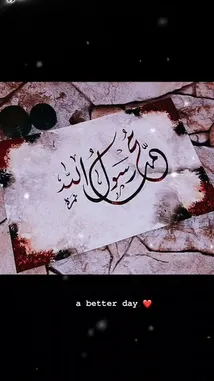 محمد رسول الله
a better day ❤️